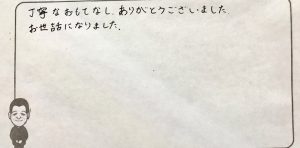 丁寧なおもてなし、ありがとうございました。
お世話になりました。